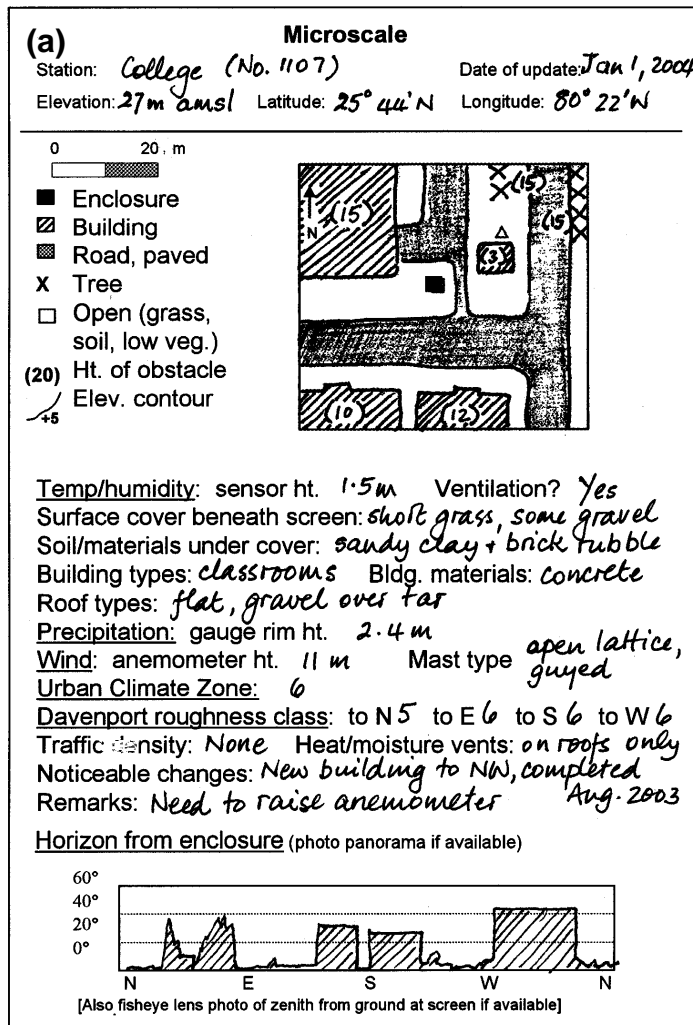 (a) Microscale
Station: College (No. 1107) Date of update: Jan 1, 2004
Elevation: 27m amsl Latitude: 25° 44' N Longitude: 80° 22' W
0 20 m
Enclosure
Building
Road, paved
X Tree
Open (grass,
soil, low veg.)
(20) Ht. of obstacle
+5 Elev. contour
(15) (15)
N (15)
(3)
(10) (12)
Temp/humidity: sensor ht. 1.5m Ventilation? Yes
Surface cover beneath screen: short grass, some gravel
Soil/materials under cover: sandy clay + brick rubble
Building types: classrooms Bldg. materials: concrete
Roof types: flat, gravel over tar
Precipitation: gauge rim ht. 2.4 m
Wind: anemometer ht. 11 m Mast type open lattice,
guyed
Urban Climate Zone: 6
Davenport roughness class: to N 5 to E 6 to S 6 to W 6
Traffic density: None Heat/moisture vents: on roofs only
Noticeable changes: New building to NW, completed
Aug. 2003
Remarks: Need to raise anemometer
Horizon from enclosure (photo panorama if available)
60°
40°
20°
0°
N E S W N
[Also fisheye lens photo of zenith from ground at screen if available]